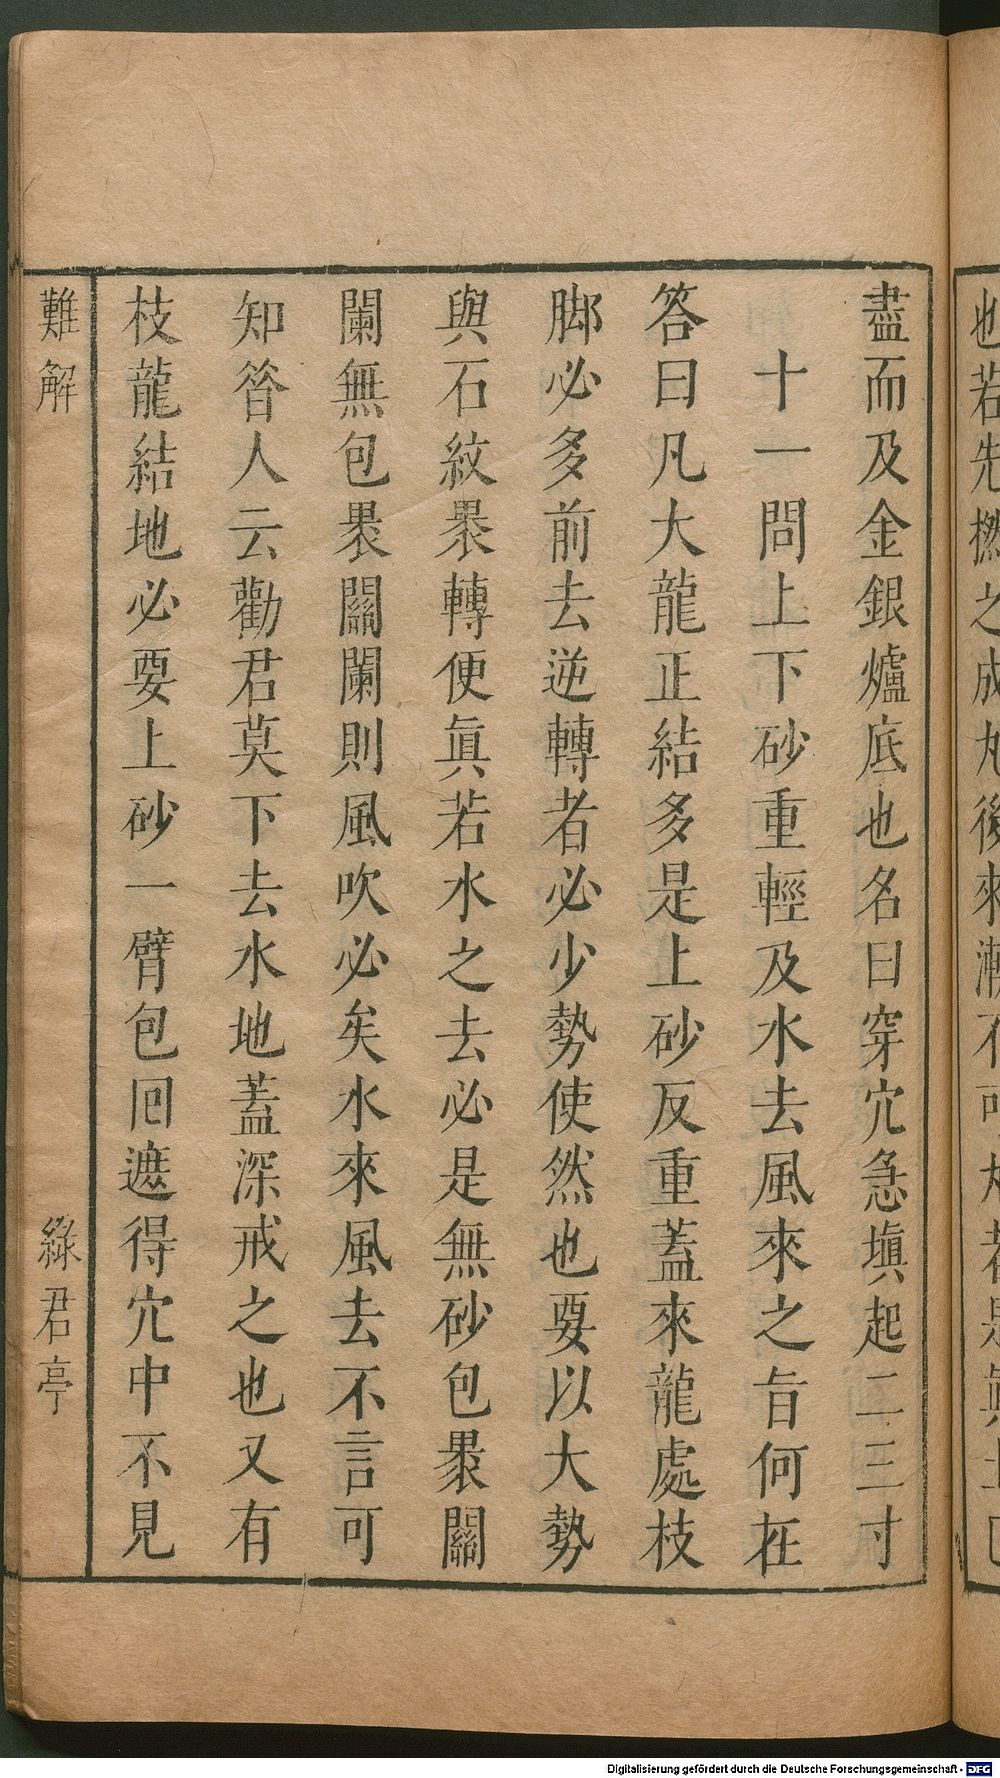 也若先撚之成丸後來漸不可丸者是眞土已
盡而及金銀爐底也名曰穿穴急塡起二三寸
十一問上下砂重輕及水去風來之旨何在
答曰凡大龍正結多是上砂反重蓋來龍處枝
脚必多前去逆轉者必少勢使然也要以大勢
與石紋褁轉便眞若水之去必是無砂包褁關
闌無包褁關闌則風吹必矣水來風去不言可
知昝人云勸君莫下去水地蓋深戒之也又有
枝龍結地必要上砂一臂包囘遮得穴中不見
難解 綠君亭
Digitalisierung gefördert durch die Deutsche Forschungsgemeinschaft - DFG